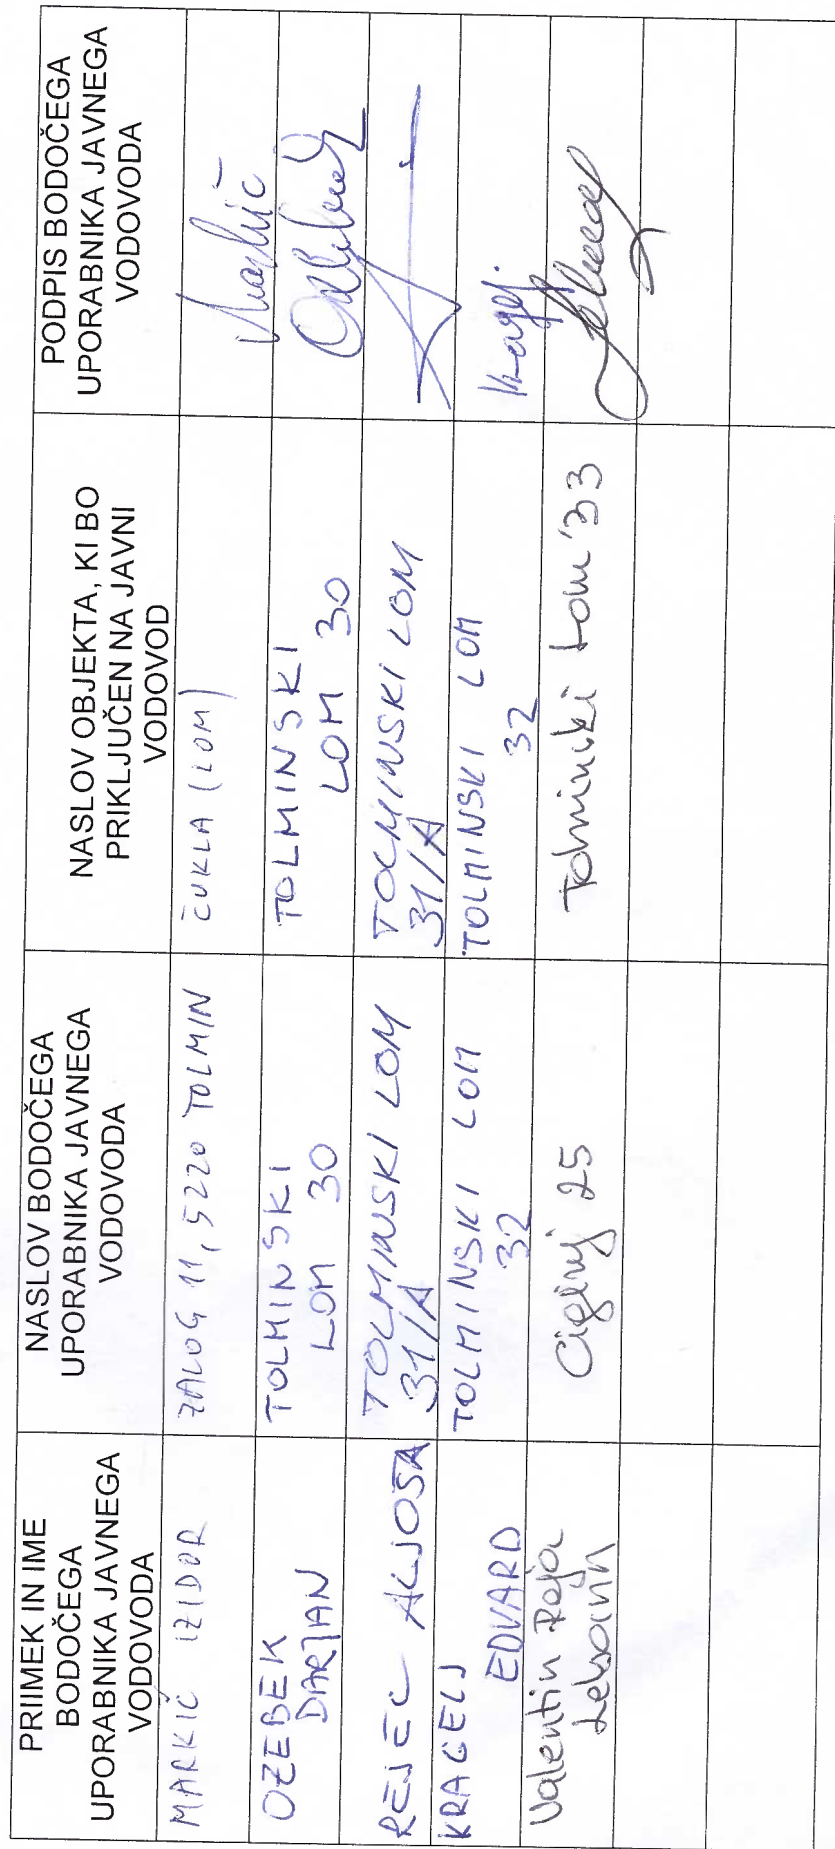 PRIIMEK IN IME
BODOČEGA
UPORABNIKA JAVNEGA
VODOVODA
NASLOV BODOČEGA
UPORABNIKA JAVNEGA
VODOVODA
NASLOV OBJEKTA, KI BO
PRIKLJUČEN NA JAVNI
VODOVOD
PODPIS BODOČEGA
UPORABNIKA JAVNEGA
VODOVODA
MARKIČ IZIDOR
ZALOG 11, 5220 TOLMIN
ČUKLA (LOM)
Markič
OZEBEK
DARJAN
TOLMINSKI
LOM 30
TOLMINSKI
LOM 30
REJEC ALJOŠA
TOLMINSKI LOM
31/A
TOLMINSKI LOM
31/A
KRAGELJ
EDVARD
TOLMINSKI LOM
32
TOLMINSKI LOM
32
Valentin Reja
Čiginj 25
Tolminski Lom 33